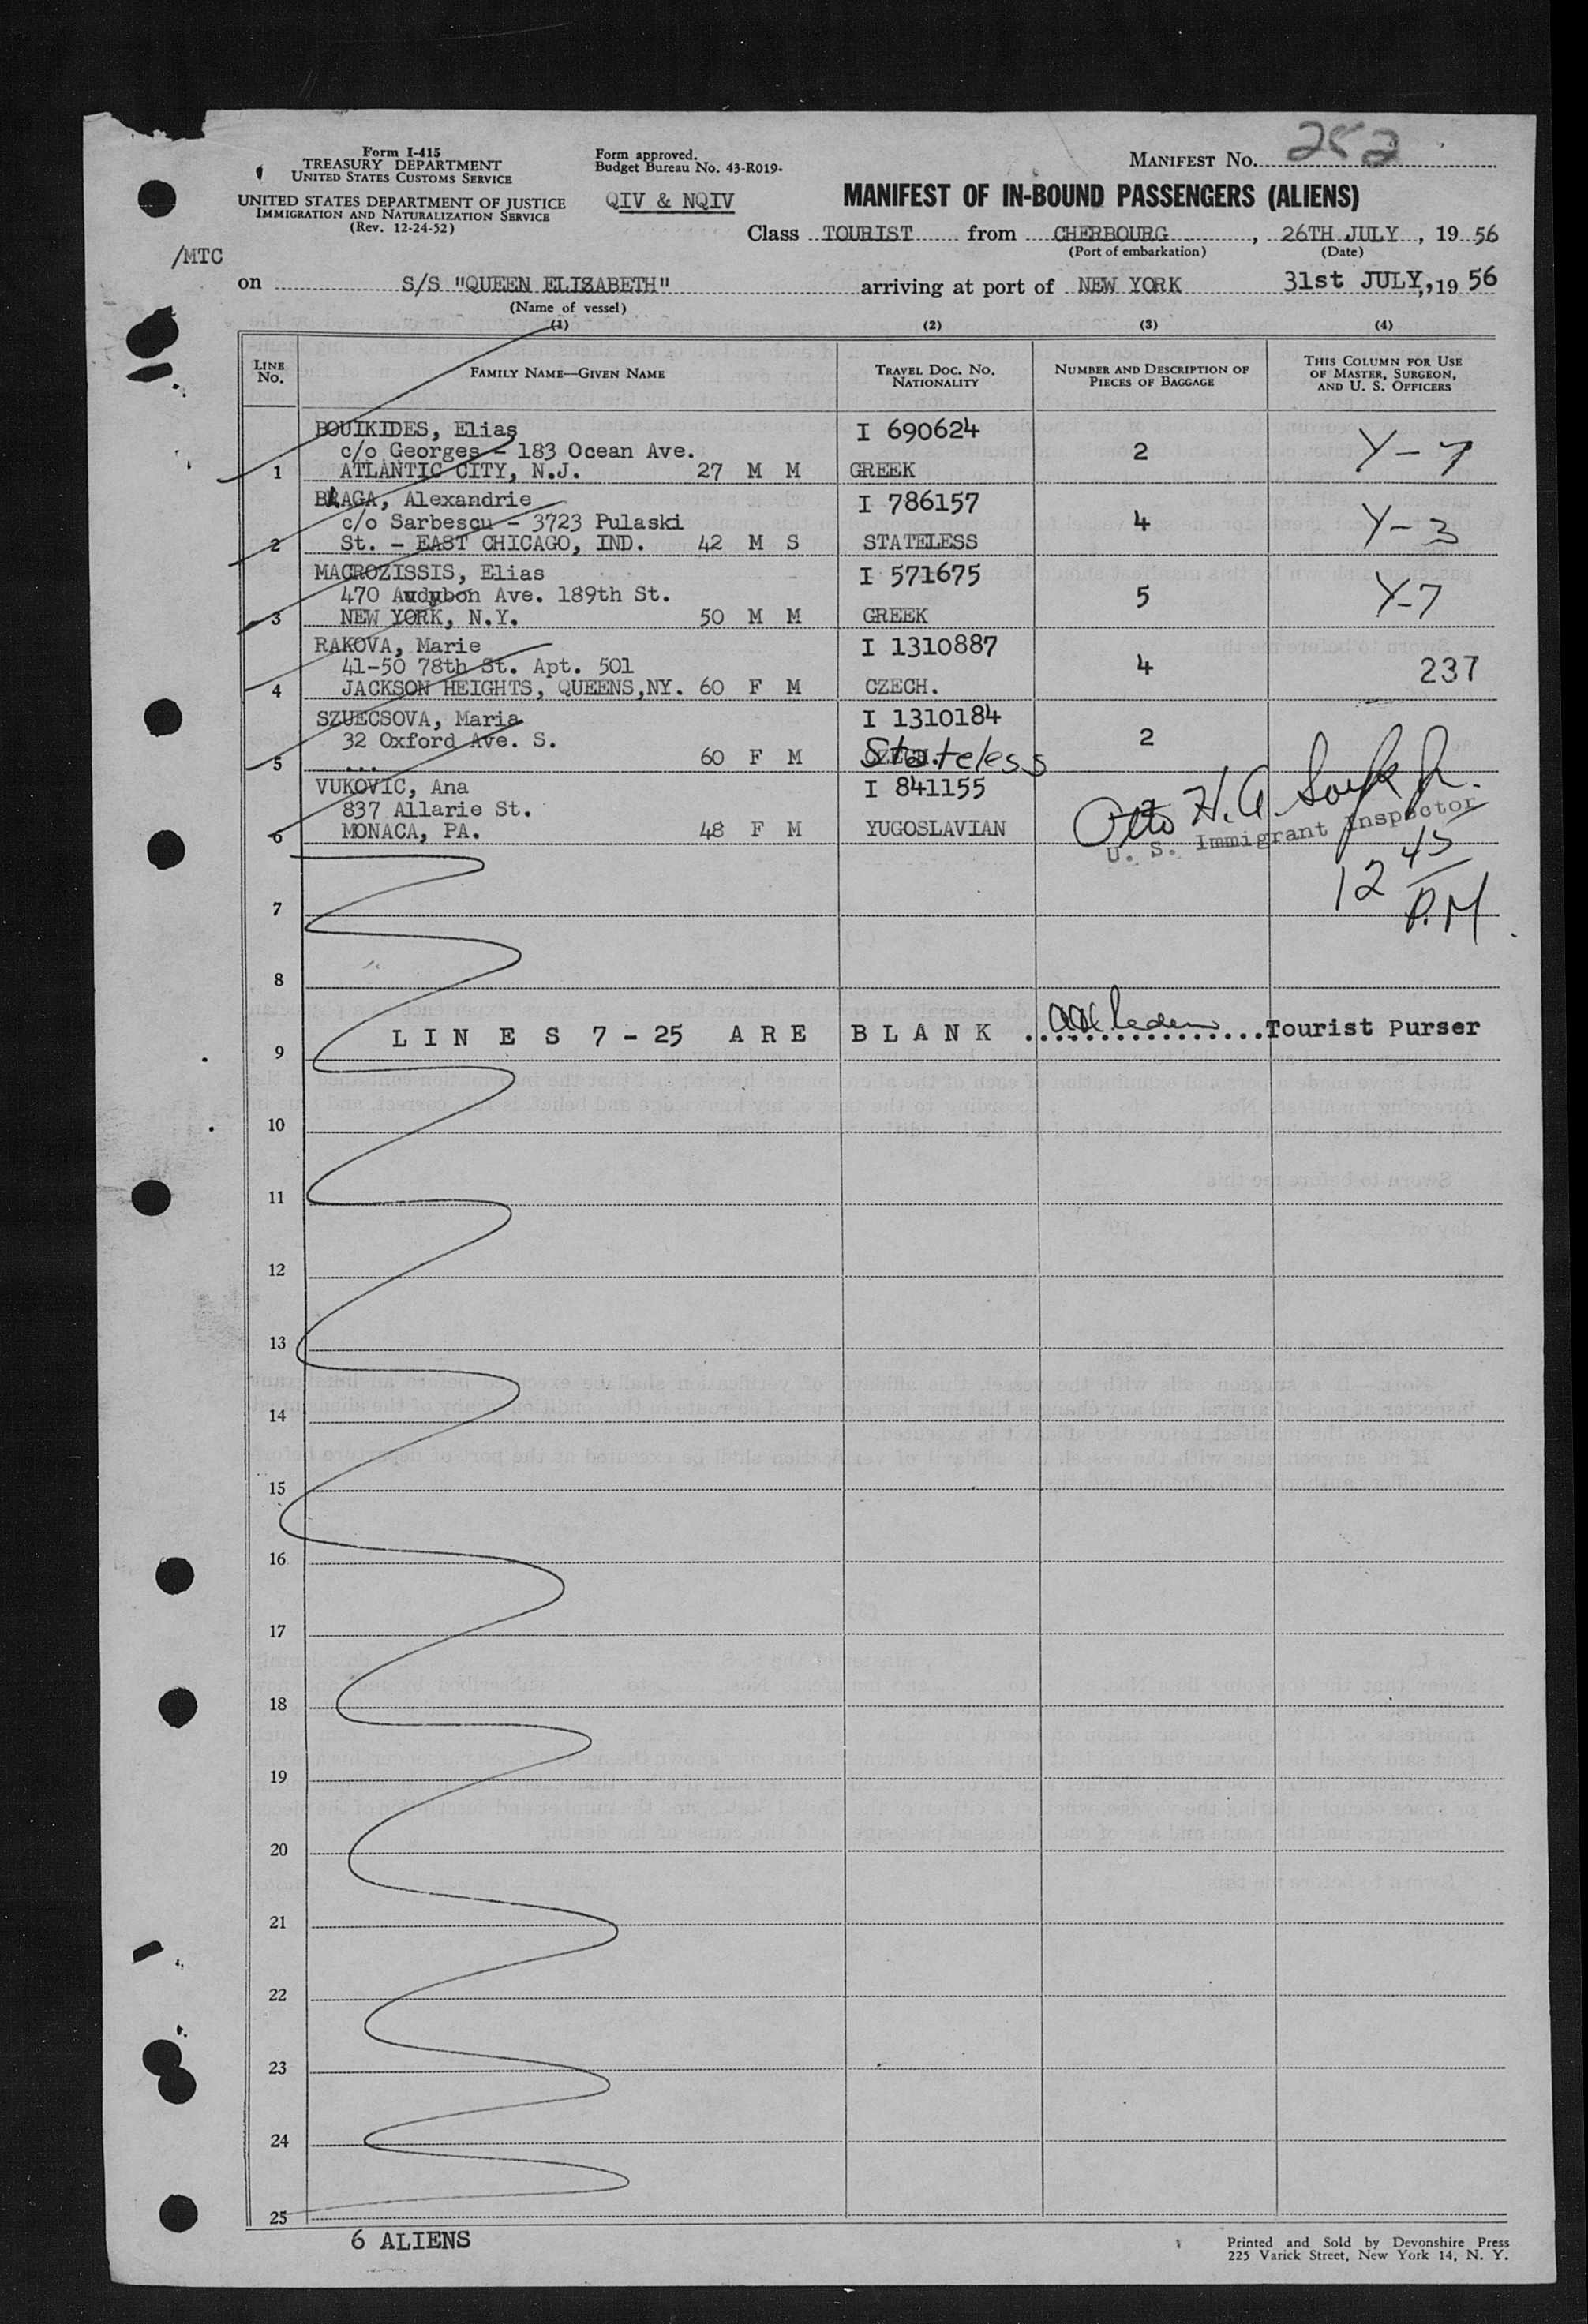 Form I-415
TREASURY DEPARTMENT
UNITED STATES CUSTOMS SERVICE
UNITED STATES DEPARTMENT OF JUSTICE
IMMIGRATION AND NATURALIZATION SERVICE
(Rev. 12-24-52)
Form approved.
Budget Bureau No. 43-R019-
QIV & NQIV
MANIFEST NO. 252
MANIFEST OF IN-BOUND PASSENGERS (ALIENS)
Class TOURIST from CHERBOURG, 26TH JULY, 19 56
(Port of embarkation) (Date)
/MTC
on S/S "QUEEN ELIZABETH" arriving at port of NEW YORK 31st JULY, 19 56
(Name of vessel)
(1) (2) (3) (4)
LINE No. FAMILY NAME—GIVEN NAME TRAVEL DOC. NO. NATIONALITY NUMBER AND DESCRIPTION OF PIECES OF BAGGAGE THIS COLUMN FOR USE OF MASTER, SURGEON, AND U. S. OFFICERS
BOUIKIDES, Elias I 690624
c/o Georges - 183 Ocean Ave. 2 Y-7
1 ATLANTIC CITY, N.J. 27 M M GREEK
BRAGA, Alexandrie I 786157
c/o Sarbescu - 3723 Pulaski 4 Y-3
2 St. - EAST CHICAGO, IND. 42 M S STATELESS
MACROZISSIS, Elias I 571675
470 Audubon Ave. 189th St. 5 Y-7
3 NEW YORK, N.Y. 50 M M GREEK
RAKOVA, Marie I 1310887
41-50 78th St. Apt. 501 4 237
4 JACKSON HEIGHTS, QUEENS,NY. 60 F M CZECH.
SZUECSOVA, Maria I 1310184
32 Oxford Ave. S. 2
5 ... 60 F M Stateless
VUKOVIC, Ana I 841155
837 Allarie St.
6 MONACA, PA. 48 F M YUGOSLAVIAN
Otto H. A.
U. S. Immigrant Inspector
12 45
P.M
7
8
9 LINES 7-25 ARE BLANK ........Tourist Purser
10
11
12
13
14
15
16
17
18
19
20
21
22
23
24
25
6 ALIENS
Printed and Sold by Devonshire Press
225 Varick Street, New York 14, N. Y.